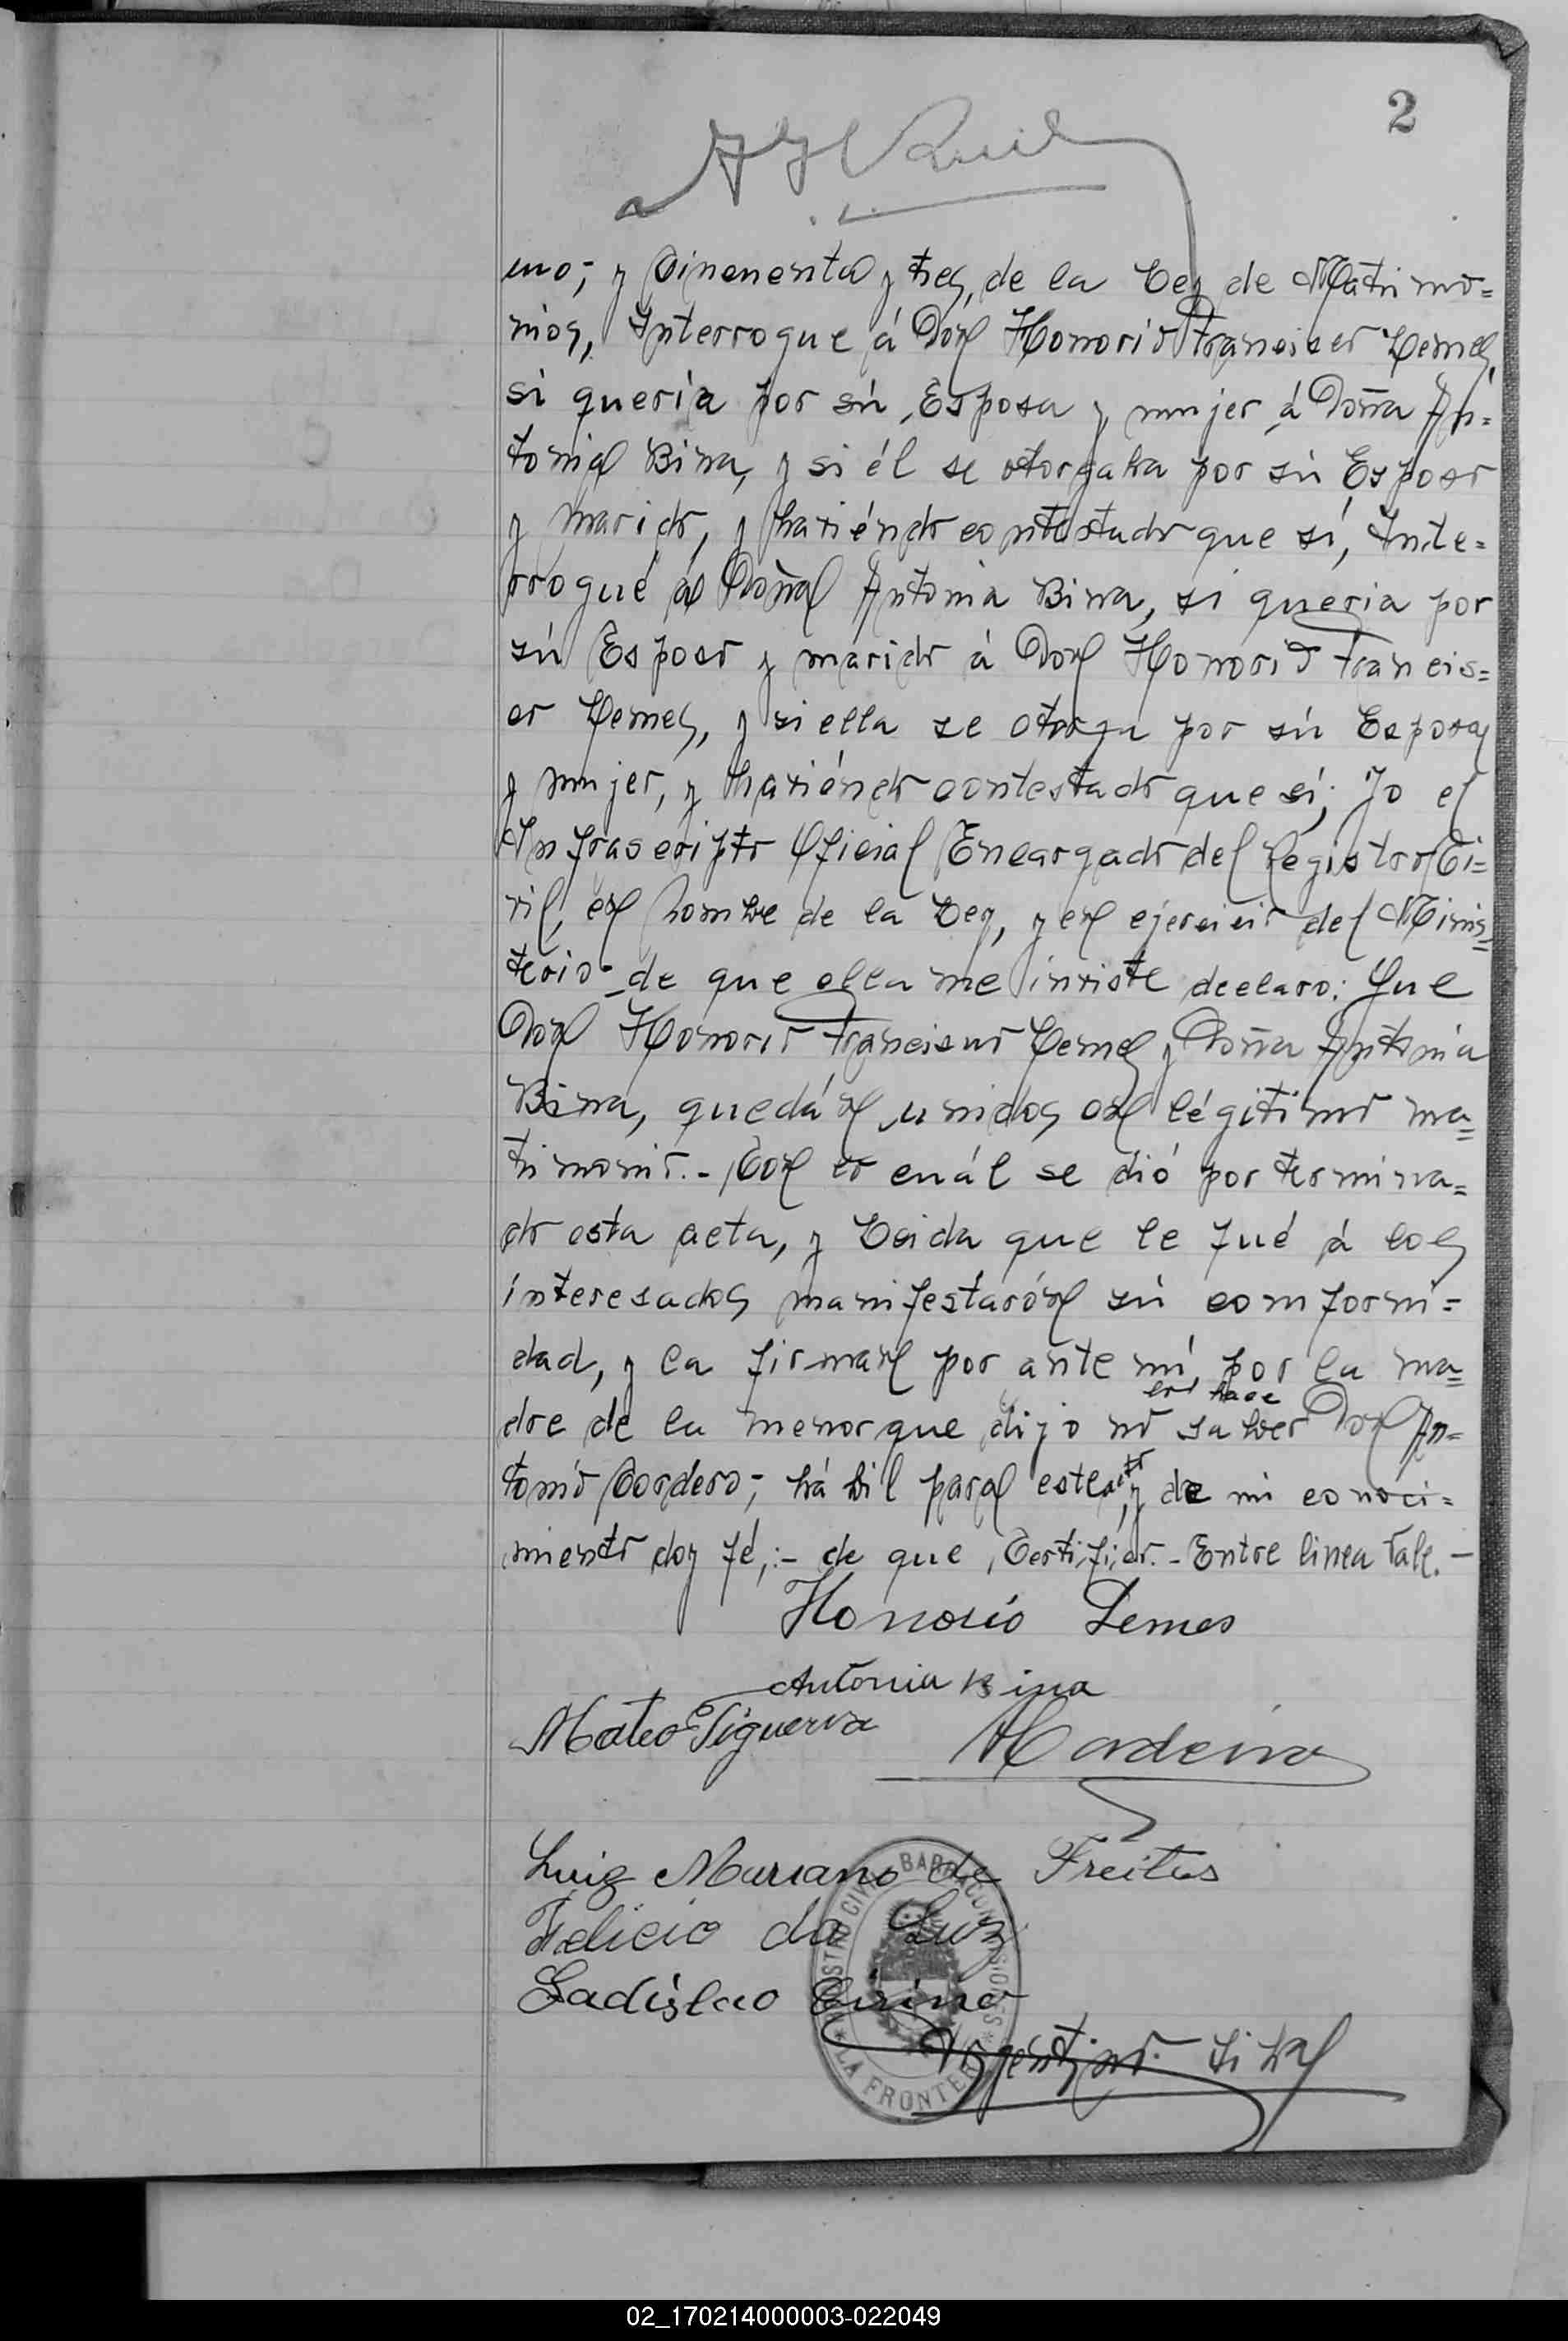 2
uno; y Cincuenta y tres, de la Ley de Matrimo=
nios, Interrogue á Don Honorio Francisco Lemes,
si queria por sú Esposa y mujer á Doña An=
tonia Bina, y si él se otorgaba por sú Esposo
y marido, y haviéndo contestado que sí, Inte=
rrogué á Doña Antonia Bina, si queria por
sú Esposo y marido á Don Honorio Francis=
co Lemes, y si ella se otorga por sú Esposa
y mujer, y haviéndo contestado que sí; Yo el
Infrascripto Oficial Encargado del Registro Ci=
vil, en nombre de la Ley, y en ejercicio del Minis=
terio de que ella me inviste declaro: Que
Don Honorio Francisco Lemes y Doña Antonia
Bina, quedán unidos en légitimo ma=
trimonio.- Con lo cuál se dió por termina=
do esta acta, y Leida que le fué á los
interesados manifestarón sú comformi=
dad, y la firman por ante mí, por la ma=
lo hace
dre de la menor que dijo no saber Don An=
tonio Cordero; hábil para este acto, y de mi conoci=
miento doy fé,:- de que, Certifico.- Entre linea Vale.-
Honorio Lemes
Antonia Bina
Mateo Figueroa
Madeira
Luiz Mariano de Freitas
Felicio da Luz
Ladislao Cirino
REGISTRO CIVIL BARRACON MISIONES
* LA FRONTERA *
Argentino
02_170214000003-022049